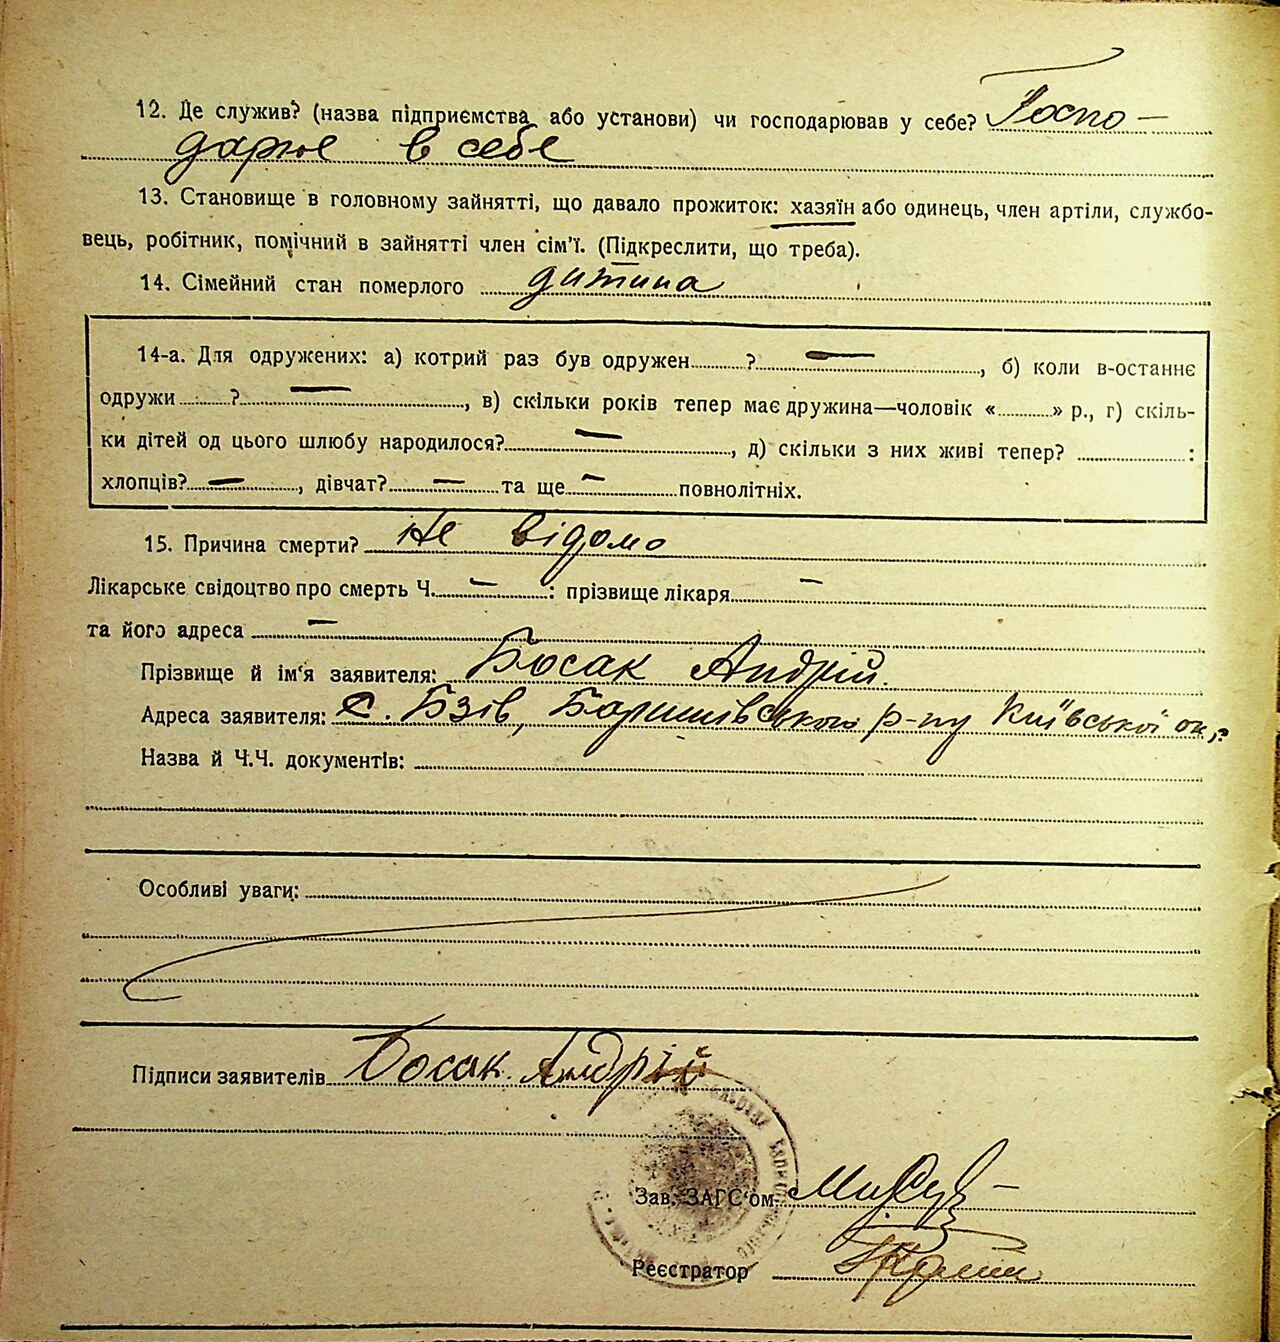 12. Де служив? (назва підприємства або установи) чи господарював у себе? Госпо-
дарює в себе
13. Становище в головному зайнятті, що давало прожиток: хазяїн або одинець, член артіли, службо-
вець, робітник, помічний в зайнятті член сім'ї. (Підкреслити, що треба).
14. Сімейний стан померлого дитина
14-а. Для одружених: а) котрий раз був одружен ? —, б) коли в-останнє
одружи ? —, в) скільки років тепер має дружина—чоловік « » р., г) скіль-
ки дітей од цього шлюбу народилося? —, д) скільки з них живі тепер? :
хлопців? —, дівчат? — та ще — повнолітніх.
15. Причина смерти? Не відомо
Лікарське свідоцтво про смерть Ч. —: прізвище лікаря —
та його адреса —
Прізвище й ім'я заявителя: Босак Андрій.
Адреса заявителя: с. Бзів, Баришівського р-ну Київської ок.
Назва й Ч.Ч. документів:
Особливі уваги:
Підписи заявителів Босак Андрій
Зав. ЗАГС'ом
Реєстратор